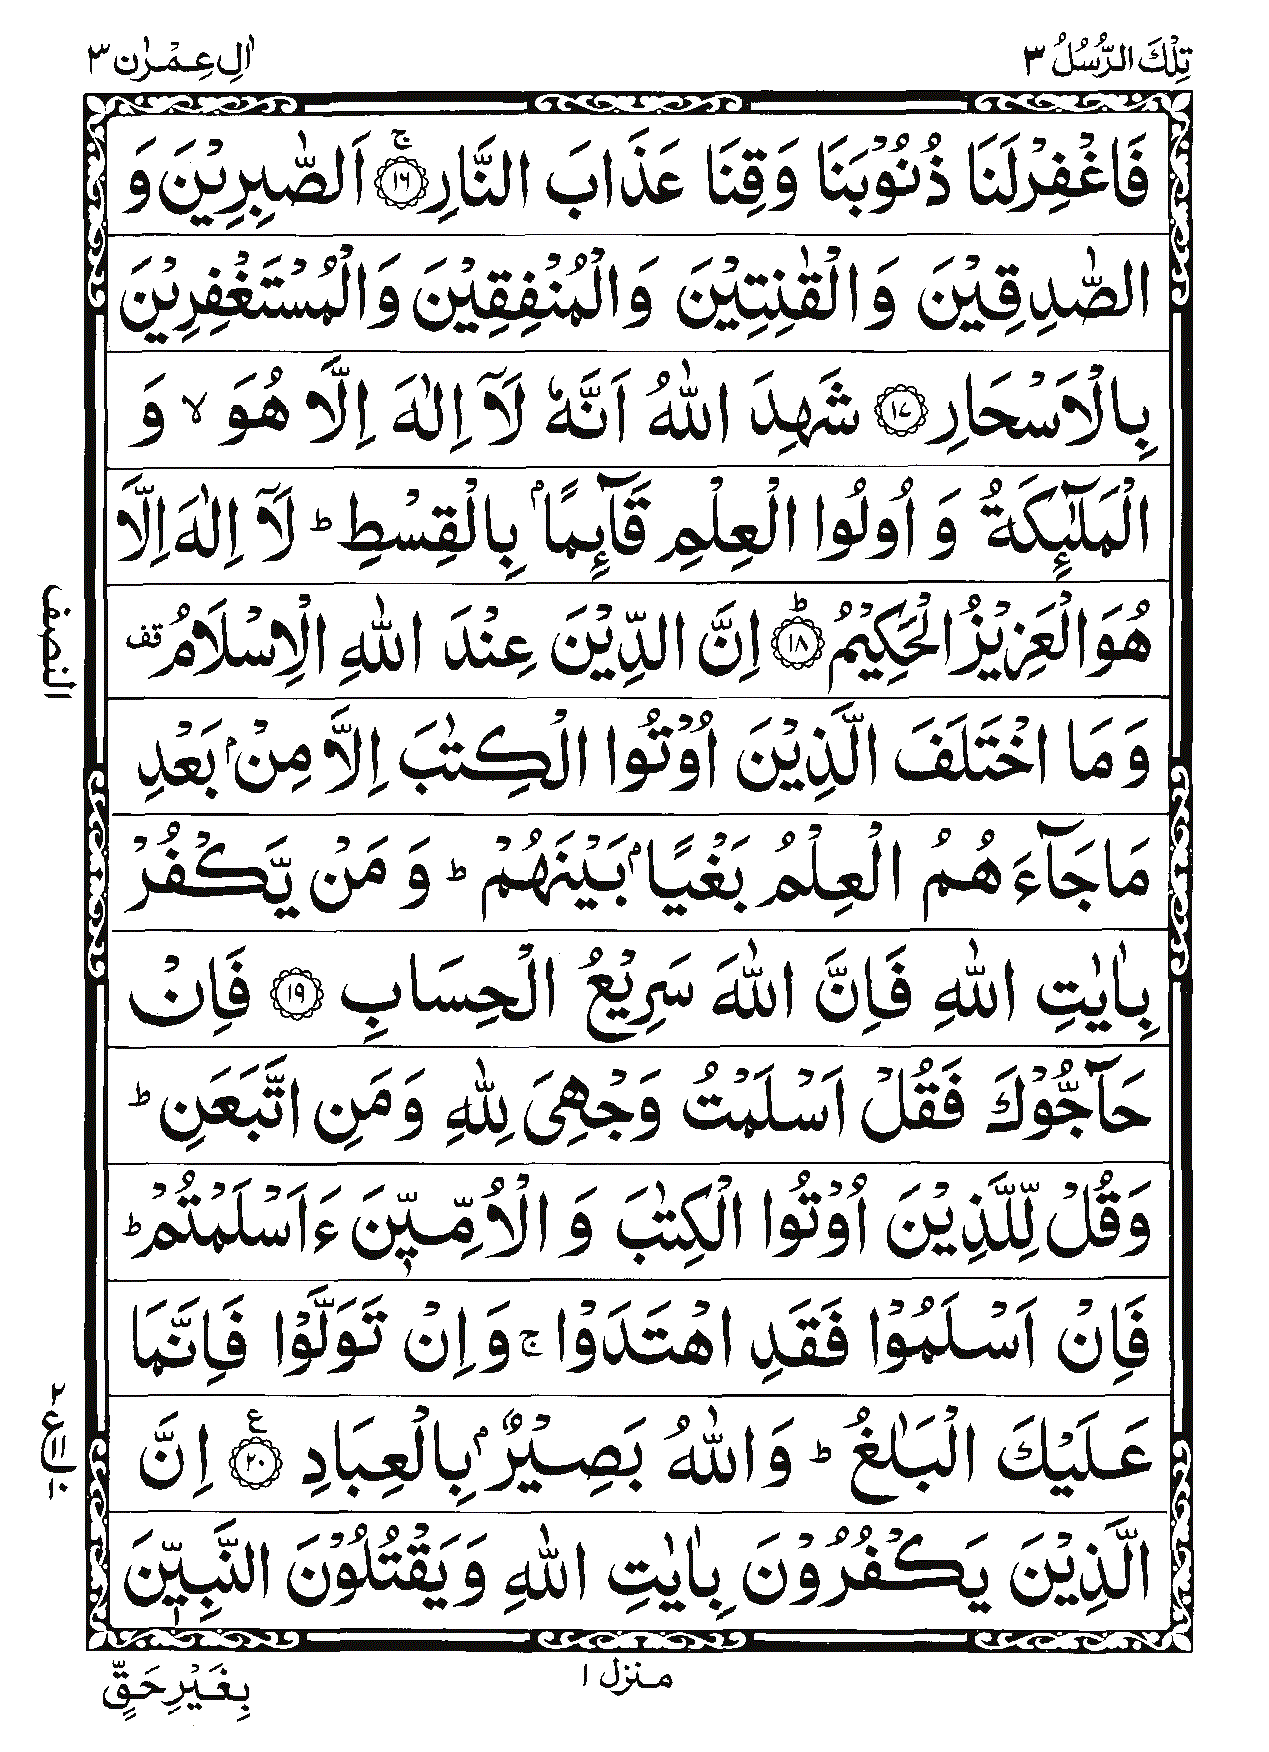 تِلْكَ الرُّسُلُ ٣
اٰلِ عِمْرٰن ٣
فَاغْفِرْلَنَا ذُنُوْبَنَا وَقِنَا عَذَابَ النَّارِ ۚ‏﴿۱۶﴾ اَلصّٰبِرِيْنَ وَ
الصّٰدِقِيْنَ وَ الْقٰنِتِيْنَ وَالْمُنْفِقِيْنَ وَالْمُسْتَغْفِرِيْنَ
بِالْاَسْحَارِ ﴿۱۷﴾ شَهِدَ اللّٰهُ اَنَّهٗ لَاۤ اِلٰهَ اِلَّا هُوَ ۙ وَ
الْمَلٰٓئِكَةُ وَ اُولُوا الْعِلْمِ قَآئِمًاۢ بِالْقِسْطِ ؕ لَاۤ اِلٰهَ اِلَّا
هُوَالْعَزِيْزُالْحَكِيْمُ ؕ﴿۱۸﴾ اِنَّ الدِّيْنَ عِنْدَ اللّٰهِ الْاِسْلَامُ قف
وَ مَا اخْتَلَفَ الَّذِيْنَ اُوْتُوا الْكِتٰبَ اِلَّا مِنْۢ بَعْدِ
مَاجَآءَ هُمُ الْعِلْمُ بَغْيًاۢ بَيْنَهُمْ ؕ وَ مَنْ يَّكْفُرْ
بِاٰيٰتِ اللّٰهِ فَاِنَّ اللّٰهَ سَرِيْعُ الْحِسَابِ ﴿۱۹﴾ فَاِنْ
حَآجُّوْكَ فَقُلْ اَسْلَمْتُ وَجْهِىَ لِلّٰهِ وَمَنِ اتَّبَعَنِ ؕ
وَقُلْ لِّلَّذِيْنَ اُوْتُوا الْكِتٰبَ وَ الْاُمِّيّٖنَ ءَاَسْلَمْتُمْ ؕ
فَاِنْ اَسْلَمُوْا فَقَدِ اهْتَدَوْا ۚ وَاِنْ تَوَلَّوْا فَاِنَّمَا
عَلَيْكَ الْبَلٰغُ ؕ وَاللّٰهُ بَصِيْرٌۢ بِالْعِبَادِ ﴿۲۰﴾ ع اِنَّ
الَّذِيْنَ يَكْفُرُوْنَ بِاٰيٰتِ اللّٰهِ وَيَقْتُلُوْنَ النَّبِيّٖنَ
النصف
٢
ع
١١
١٠
منزل ١
بِغَيْرِحَقٍّ